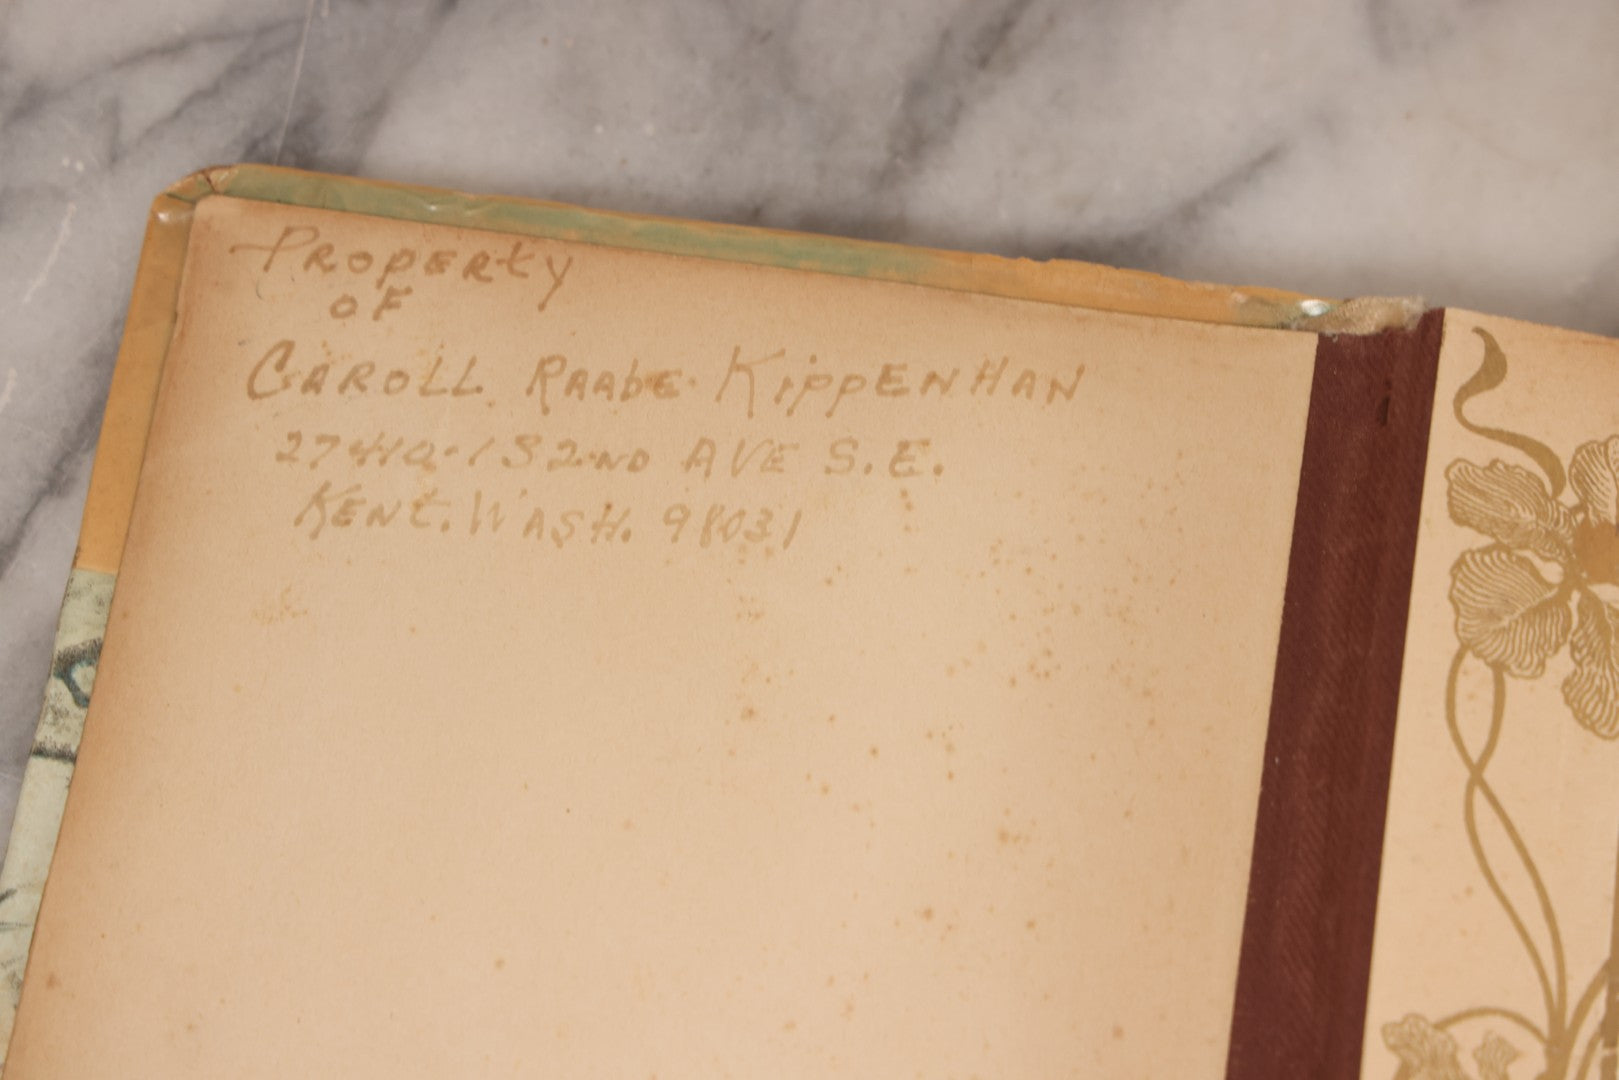 PROPERTY
OF
CAROLL RAABE KIPPENHAN
27410-132ND AVE S.E.
KENT. WASH. 98031